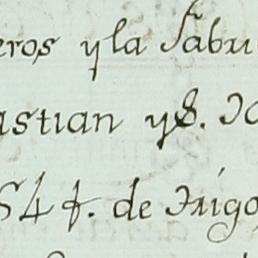 eros y la Fabri
astian y S. Jo
54 f. de Trigo